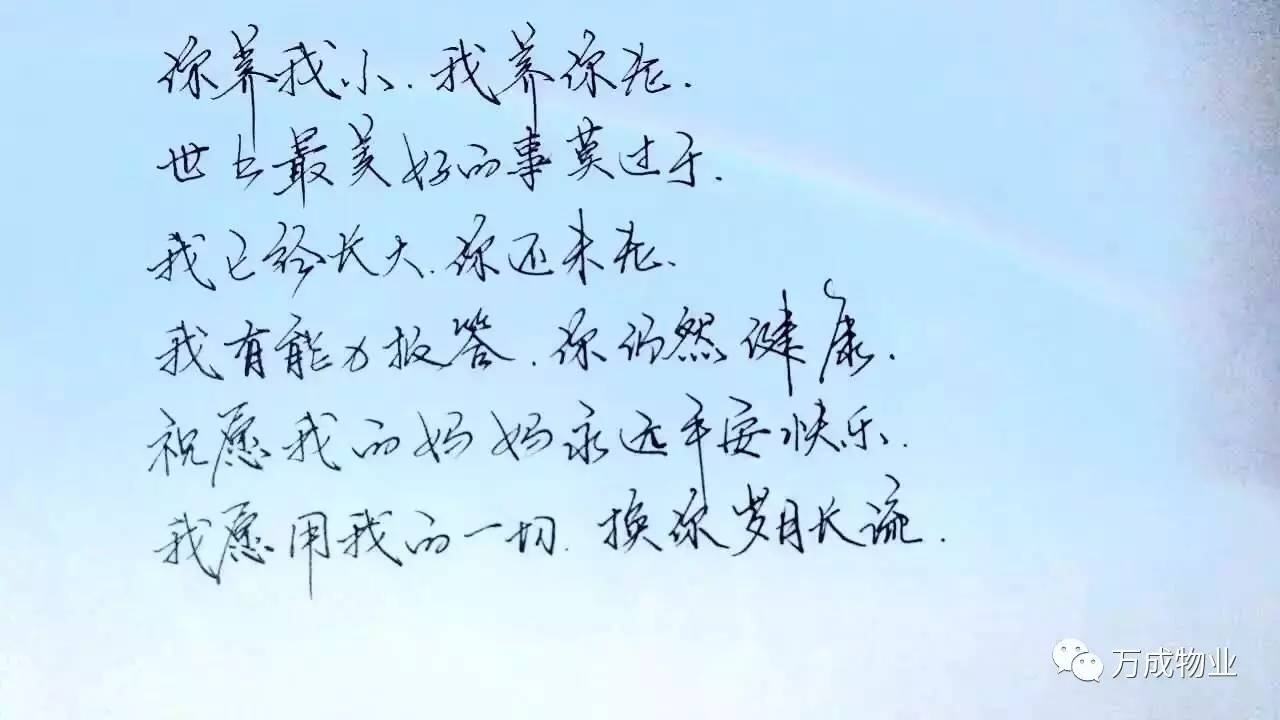 你养我小.我养你老.
世上最美好的事莫过于.
我已经长大.你还未老.
我有能力报答.你仍然健康.
祝愿我的妈妈永远平安快乐.
我愿用我的一切.换你岁月长流.
万成物业